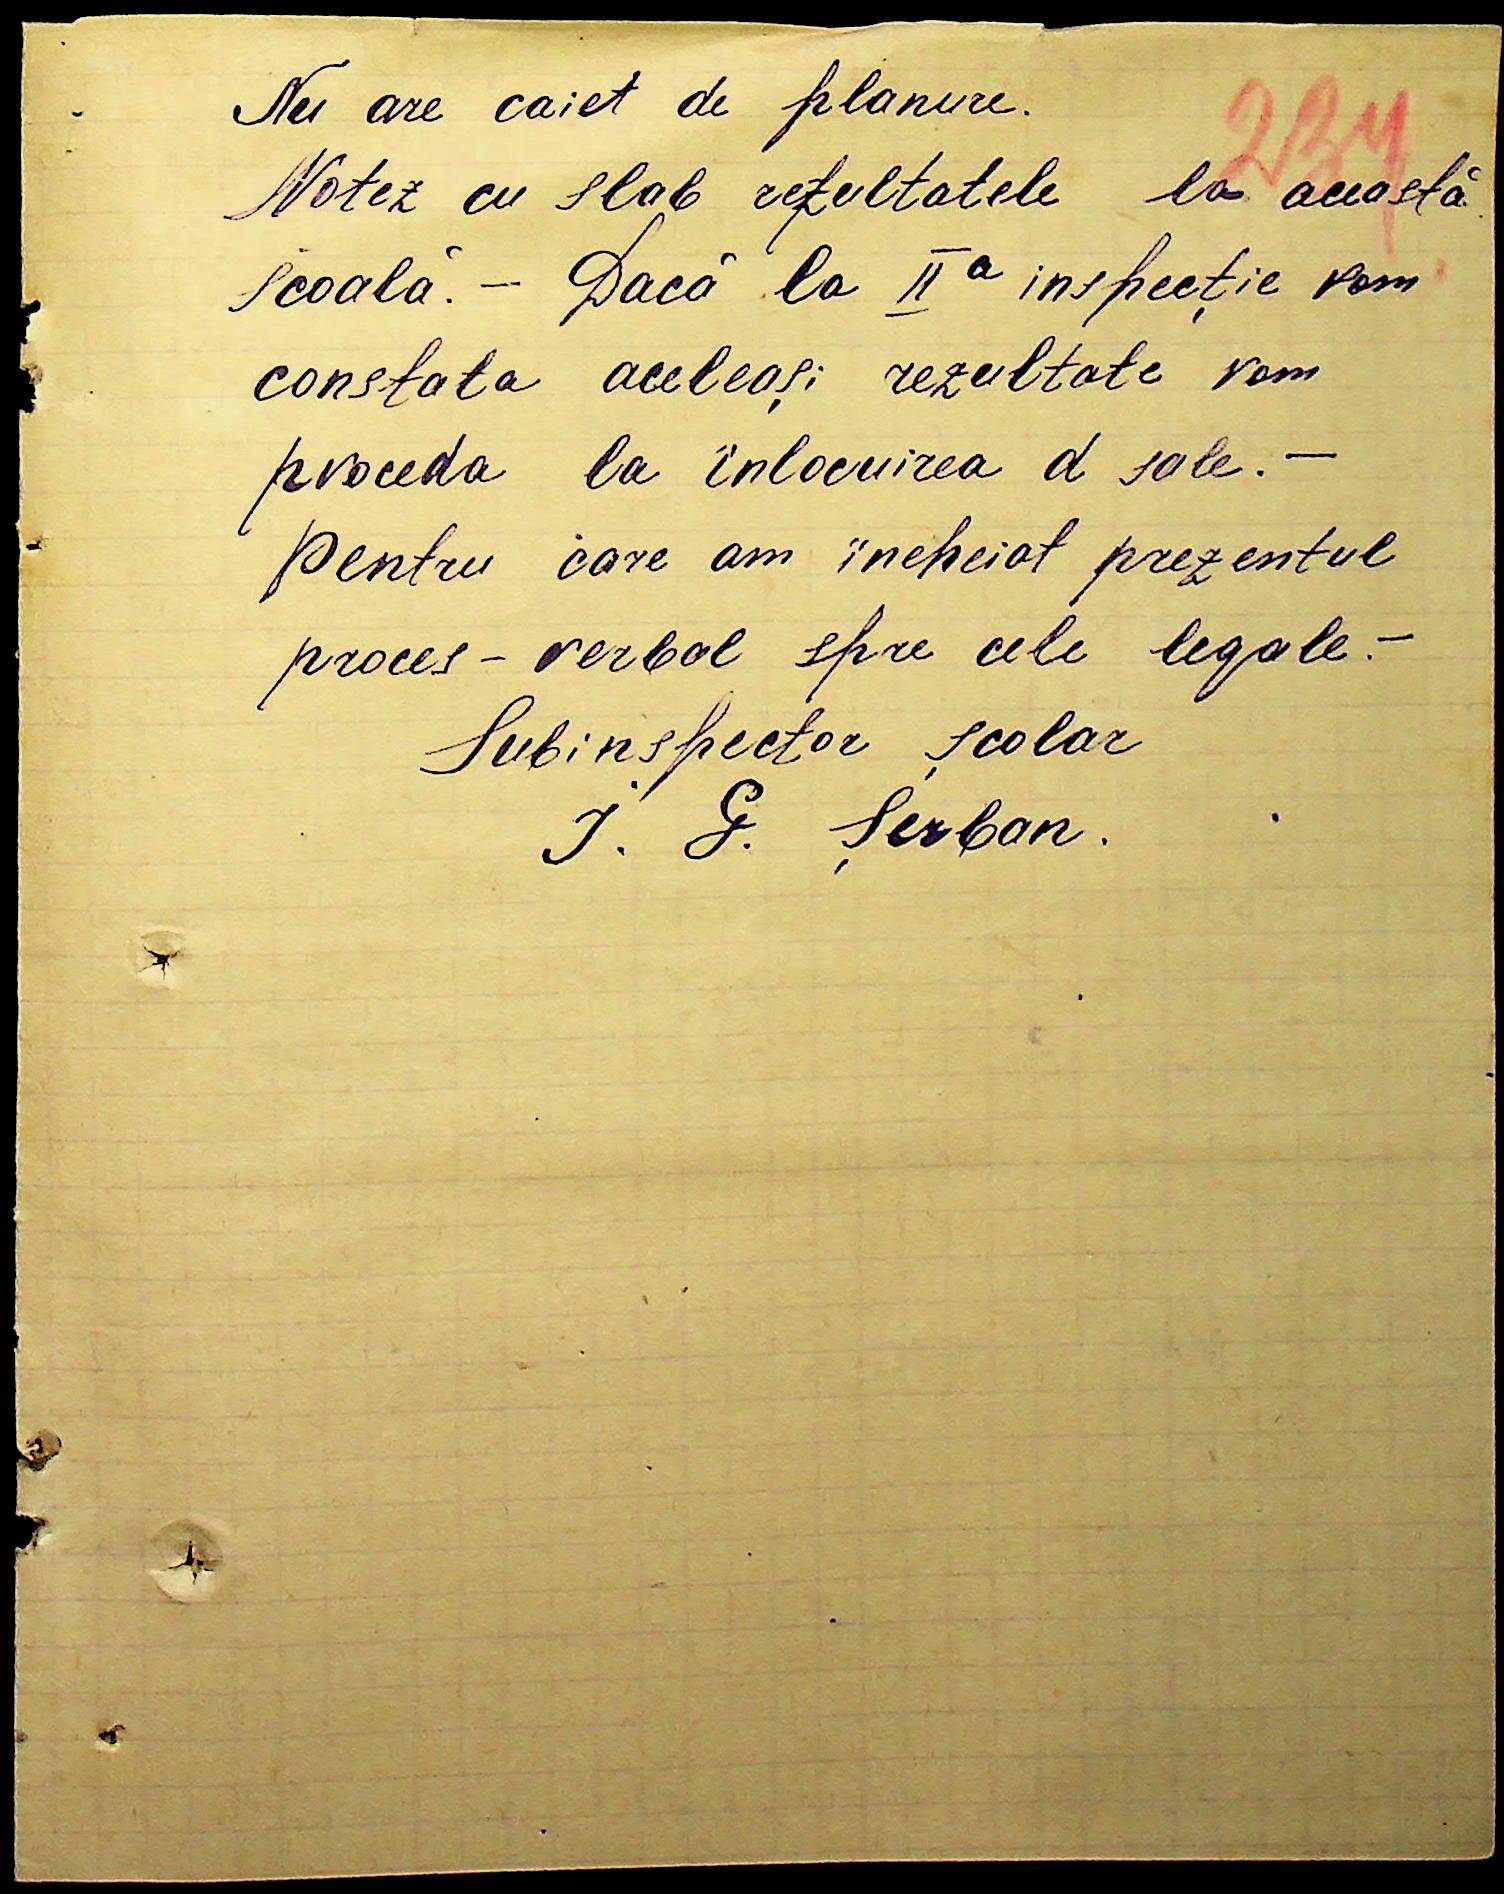 Nu are caiet de planure.
234
Notez cu slab rezultatele la această
școală. — Dacă la IIa inspecție vom
constata aceleași rezultate vom
proceda la înlocuirea d sale. —
Pentru care am încheiat prezentul
proces - verbal spre cele legale. —
Subinspector școlar
I. G. Șerban.